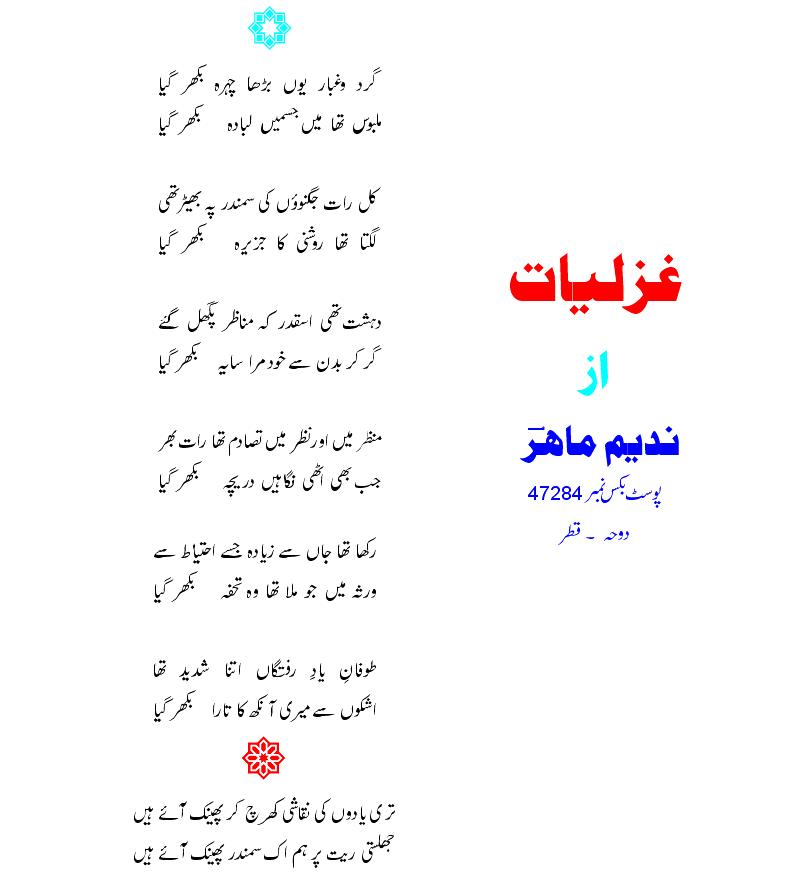 غزلیات
از
ندیم ماهرؔ
پوسٹ بکس نمبر 47284
دوحہ ۔ قطر
گرد وغبار یوں بڑھا چہرہ بکھر گیا
ملبوس تھا میں جسمیں لبادہ بکھر گیا
کل رات جگنوؤں کی سمندر پہ بھیڑ تھی
لگتا تھا روشنی کا جزیرہ بکھر گیا
دہشت تھی اسقدر کہ مناظر پگھل گئے
گر کر بدن سے خود مرا سایہ بکھر گیا
منظر میں اور نظر میں تصادم تھا رات بھر
جب بھی اٹھی نگاہیں دریچہ بکھر گیا
رکھا تھا جاں سے زیادہ جسے احتیاط سے
ورثہ میں جو ملا تھا وہ تحفہ بکھر گیا
طوفانِ یادِ رفتگاں اتنا شدید تھا
اشکوں سے میری آنکھ کا تارا بکھر گیا
تری یادوں کی نقاشی کھرچ کر پھینک آئے ہیں
جھلستی ریت پر ہم اک سمندر پھینک آئے ہیں